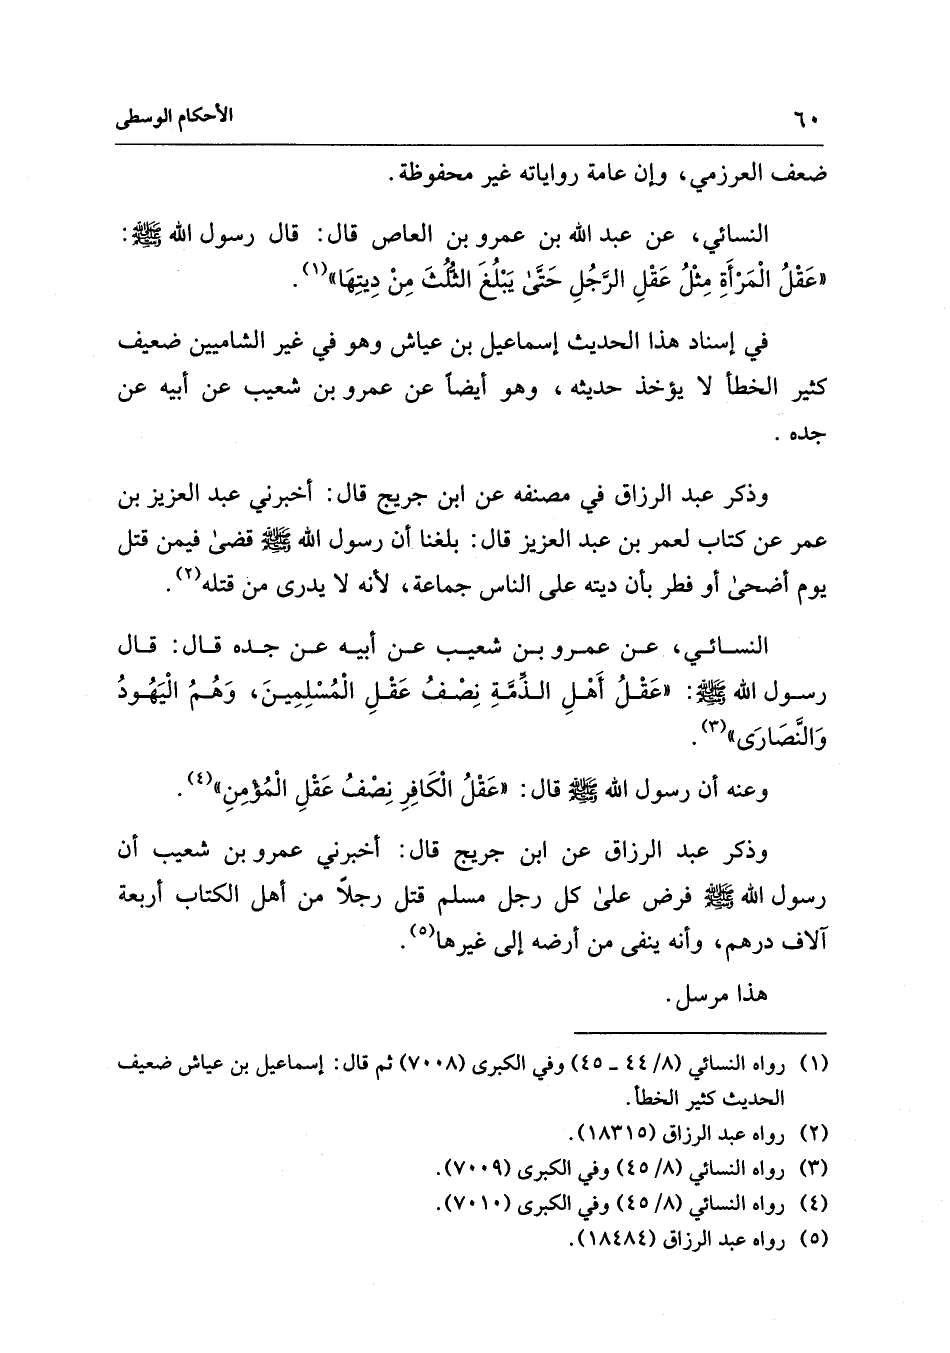 ٦٠ الأحكام الوسطى
ضعف العرزمي، وإن عامة رواياته غير محفوظة.
النسائي، عن عبد الله بن عمرو بن العاص قال: قال رسول الله ﷺ:
«عَقْلُ الْمَرْأَةِ مِثْلُ عَقْلِ الرَّجُلِ حَتَّىٰ يَبْلُغَ الثُّلُثَ مِنْ دِيتِهَا»(١).
في إسناد هذا الحديث إسماعيل بن عياش وهو في غير الشاميين ضعيف
كثير الخطأ لا يؤخذ حديثه، وهو أيضاً عن عمرو بن شعيب عن أبيه عن
جده.
وذكر عبد الرزاق في مصنفه عن ابن جريج قال: أخبرني عبد العزيز بن
عمر عن كتاب لعمر بن عبد العزيز قال: بلغنا أن رسول الله ﷺ قضىٰ فيمن قتل
يوم أضحىٰ أو فطر بأن ديته على الناس جماعة، لأنه لا يدرى من قتله(٢).
النسائي، عن عمرو بن شعيب عن أبيه عن جده قال: قال
رسول الله ﷺ: «عَقْلُ أَهْلِ الذِّمَّةِ نِصْفُ عَقْلِ الْمُسْلِمِينَ، وَهُمُ الْيَهُودُ
وَالنَّصَارَى»(٣).
وعنه أن رسول الله ﷺ قال: «عَقْلُ الْكَافِرِ نِصْفُ عَقْلِ الْمُؤْمِنِ»(٤).
وذكر عبد الرزاق عن ابن جريج قال: أخبرني عمرو بن شعيب أن
رسول الله ﷺ فرض علىٰ كل رجل مسلم قتل رجلاً من أهل الكتاب أربعة
آلاف درهم، وأنه ينفى من أرضه إلى غيرها(٥).
هذا مرسل.
(١) رواه النسائي (٨/ ٤٤ ـ ٤٥) وفي الكبرى (٧٠٠٨) ثم قال: إسماعيل بن عياش ضعيف
الحديث كثير الخطأ.
(٢) رواه عبد الرزاق (١٨٣١٥).
(٣) رواه النسائي (٨/ ٤٥) وفي الكبرى (٧٠٠٩).
(٤) رواه النسائي (٨/ ٤٥) وفي الكبرى (٧٠١٠).
(٥) رواه عبد الرزاق (١٨٤٨٤).